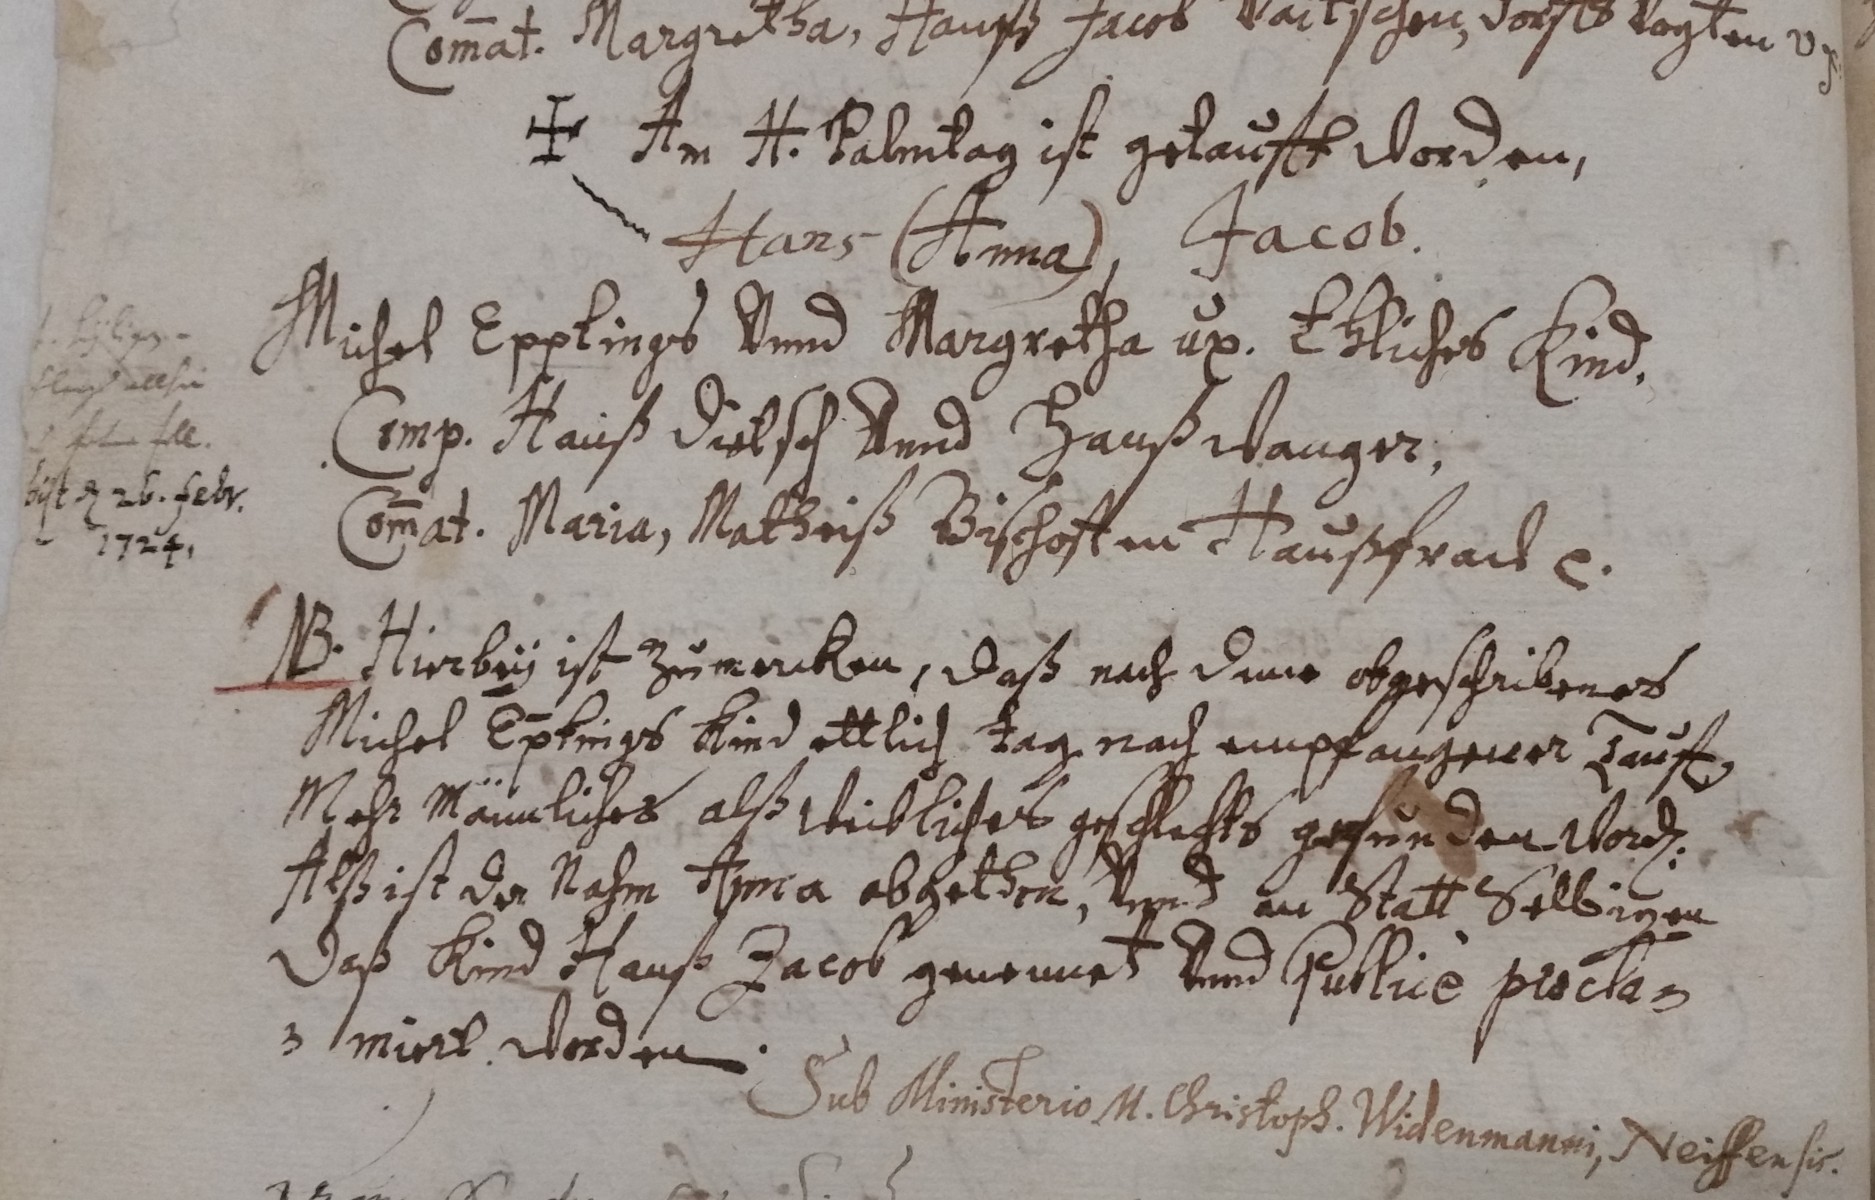 Com̄at. Margretha, Hanß Jacob Vogten
Am H. Palmtag ist getaufft worden,
Hans (Anna), Jacob.
Michel Epplings Vnnd Margretha ux. Ehliches Kind.
Comp. Hanß Dietsch Vnnd Hanß Wanger,
Com̄at. Maria, Matheiß Bischoffen Haußfraw
NB. Hierbeÿ ist zumercken, daß nach deme obgeschribenes
Michel Ep̄lings kind ettlich tag nach empfangener Tauff,
Mehr Männliches alß Weibliches geschlechts gefunden word:
Alß ist der Nahm Anna abgethon, Vnnd an Statt Selbigen
Daß Kind Hanß Jacob genennet Vnnd Publicè procla=
= miert worden.
26. Febr.
1724.
Sub Ministerio M. Christoph. Widenmanni, Neiffensis.